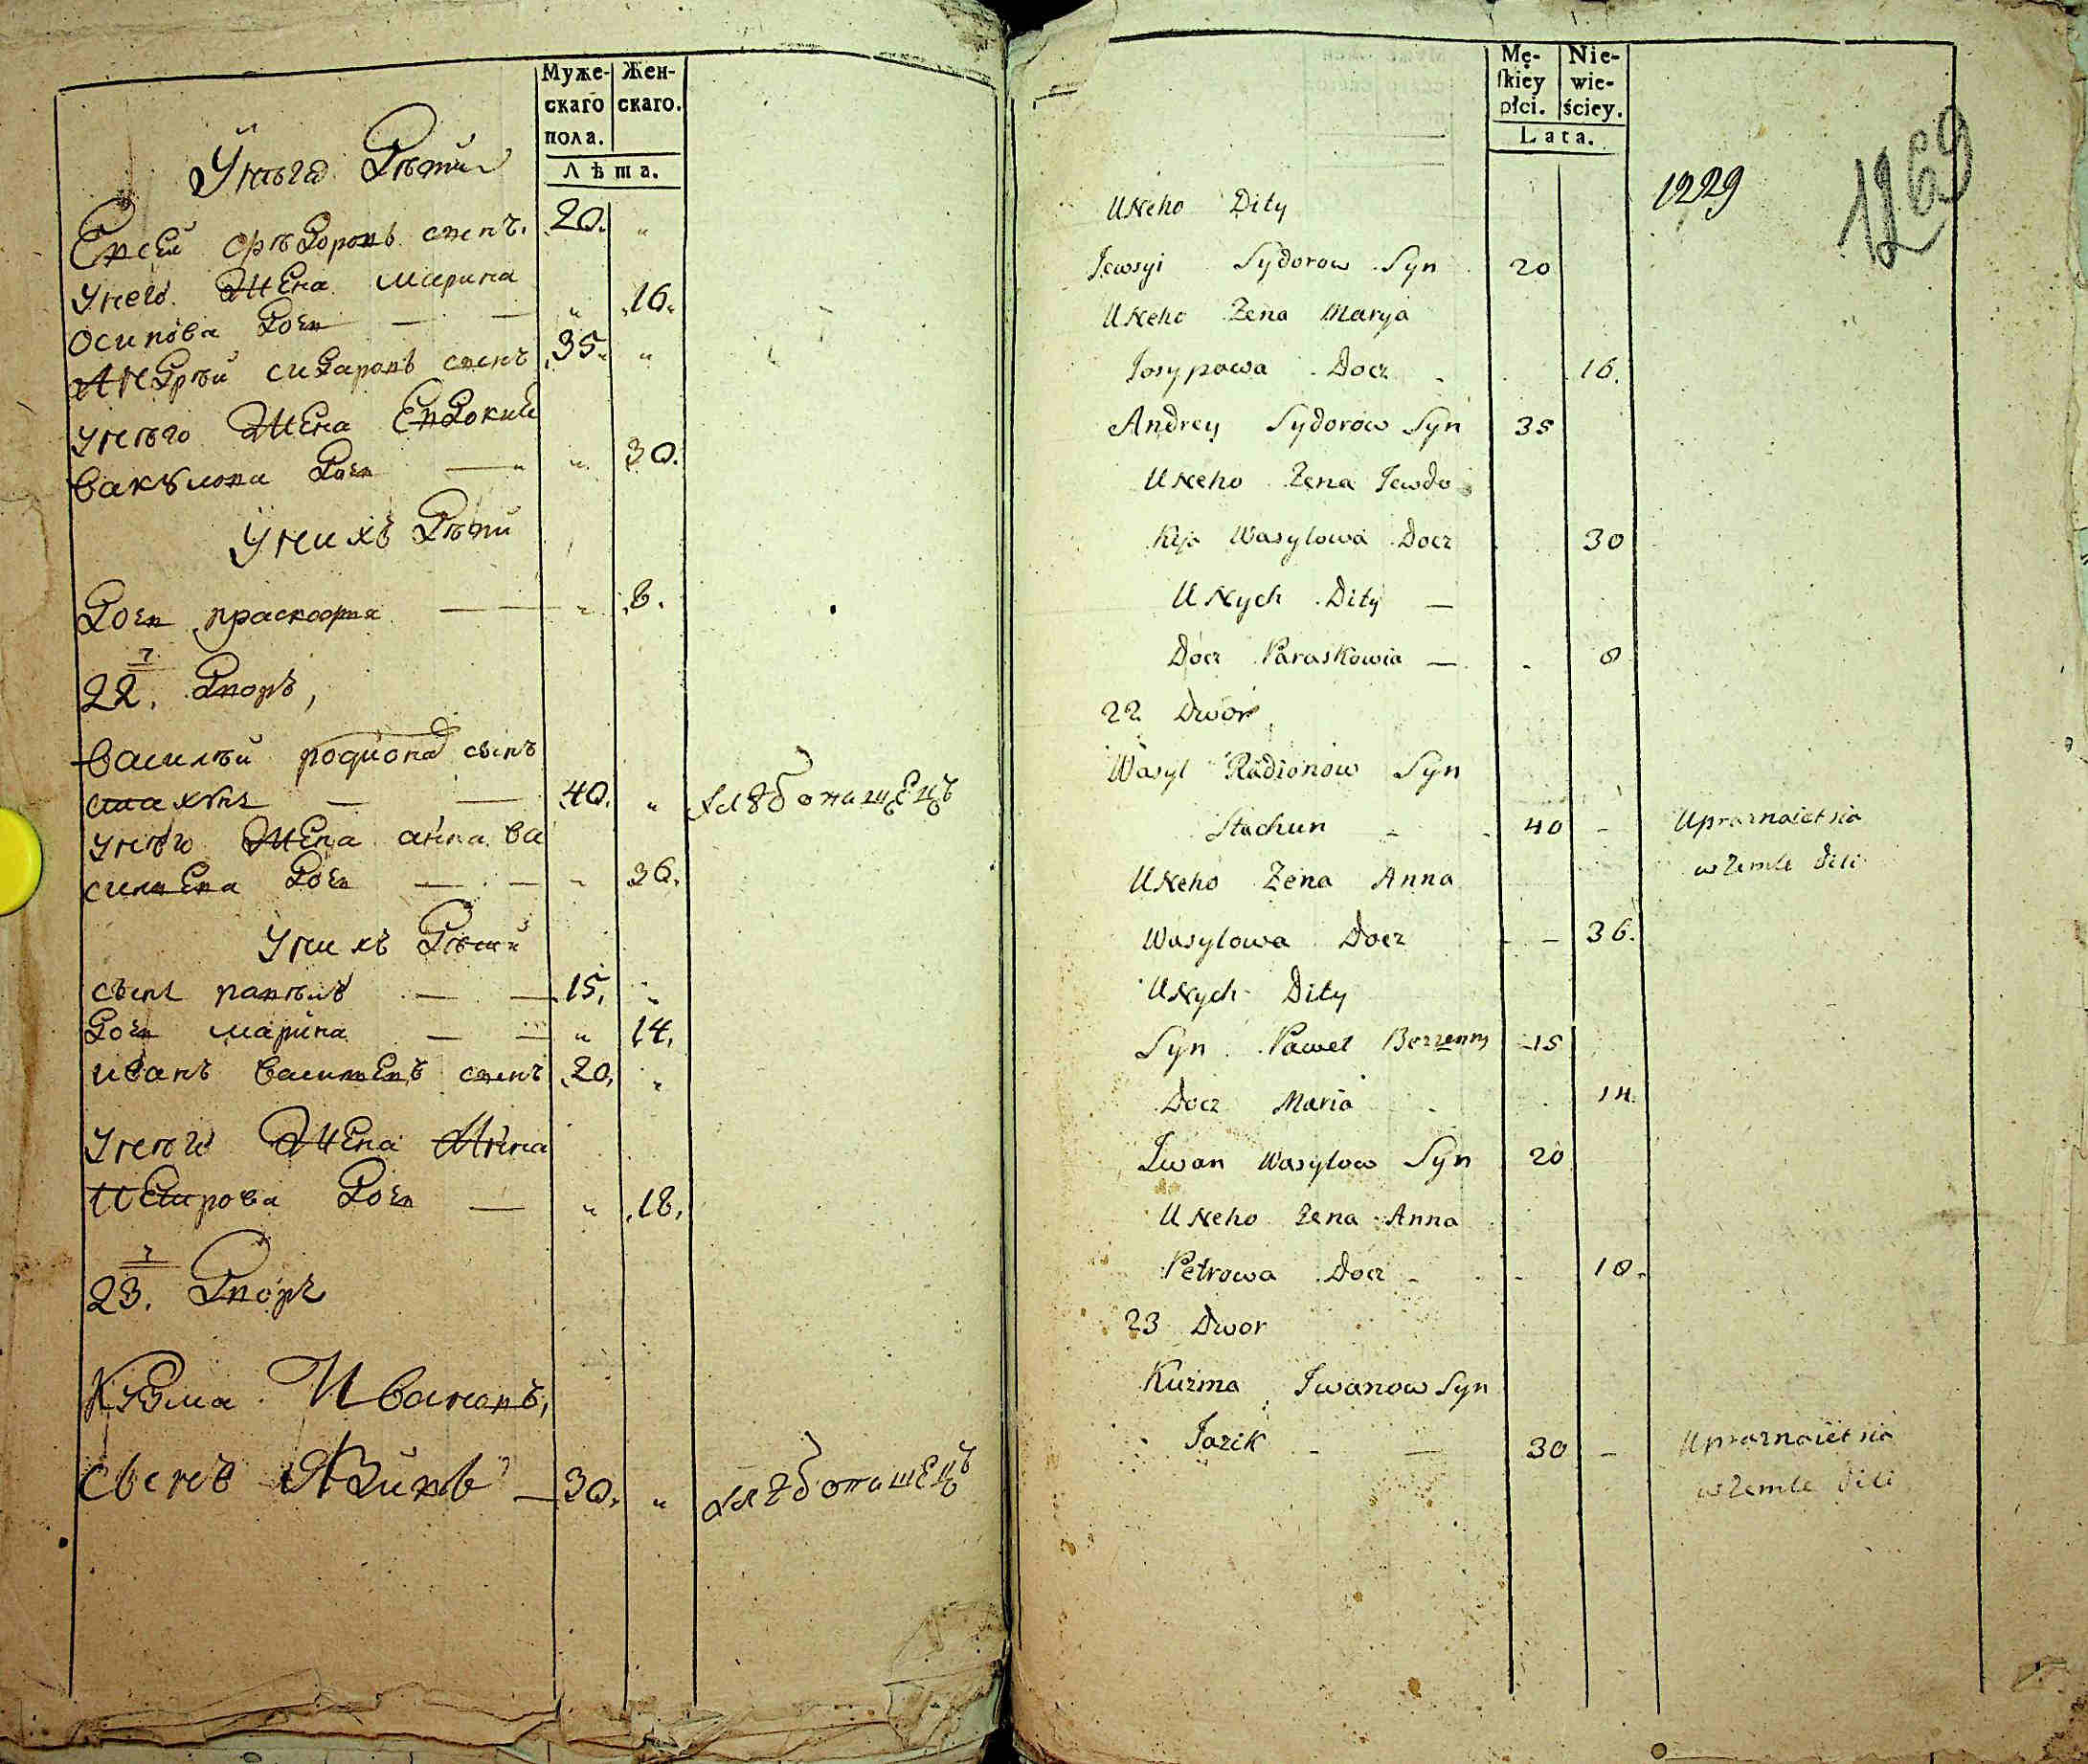 Муже-
скаго
пола.
Жен-
скаго.
Лѣта.
Унего Дѣти
Евсей Сидоровъ сынъ. 20. "
Унего Жена марина
осипова дочь — — " 16.
Андрѣй сидаровъ сынъ 35. "
унего Жена Евдокия
дочь — " 30.
Унихъ Дѣти
дочь праскофия — " 8.
22. Дворъ,
василѣй родионовъ сынъ
стахунъ — — 40. " хлѣбопашецъ
унего Жена анна ва
силева дочь — — " 36.
Унихъ Дѣти
сынъ павелъ — — 15. "
дочь марина — — " 14.
иванъ василевъ сынъ 20. "
унего Жена Анна
Петрова дочь — " 18.
23. Дворъ
Кузма Ивановъ,
сынъ Язикъ — 30. " хлѣбопашецъ
Mę-
ſkiey
płci.
Nie-
wie-
ściey.
Lata.
1229
1269
UNeho Dity
Jewsyi Sydorow Syn 20
UNeho Zena Marya
Josypowa Docz 16.
Andrey Sydorow Syn 35
UNeho Zena Jewdo
kija Wasylowa Docz 30
UNych Dity —
Docz Paraskowia — 8
22 Dwor
Wasyl Radionow Syn
Stachun 40 – Upraznaietsia
wZemle dili
UNeho Zena Anna
Wasylowa Docz – 36.
UNych Dity
Syn Paweł 15
Docz Maria 14.
Iwan Wasylow Syn 20
UNeho Zena Anna
Petrowa Docz 18.
23 Dwor
Kuzma Iwanow Syn
Jazik – — 30 – Upraznaietsia
wZemle dili